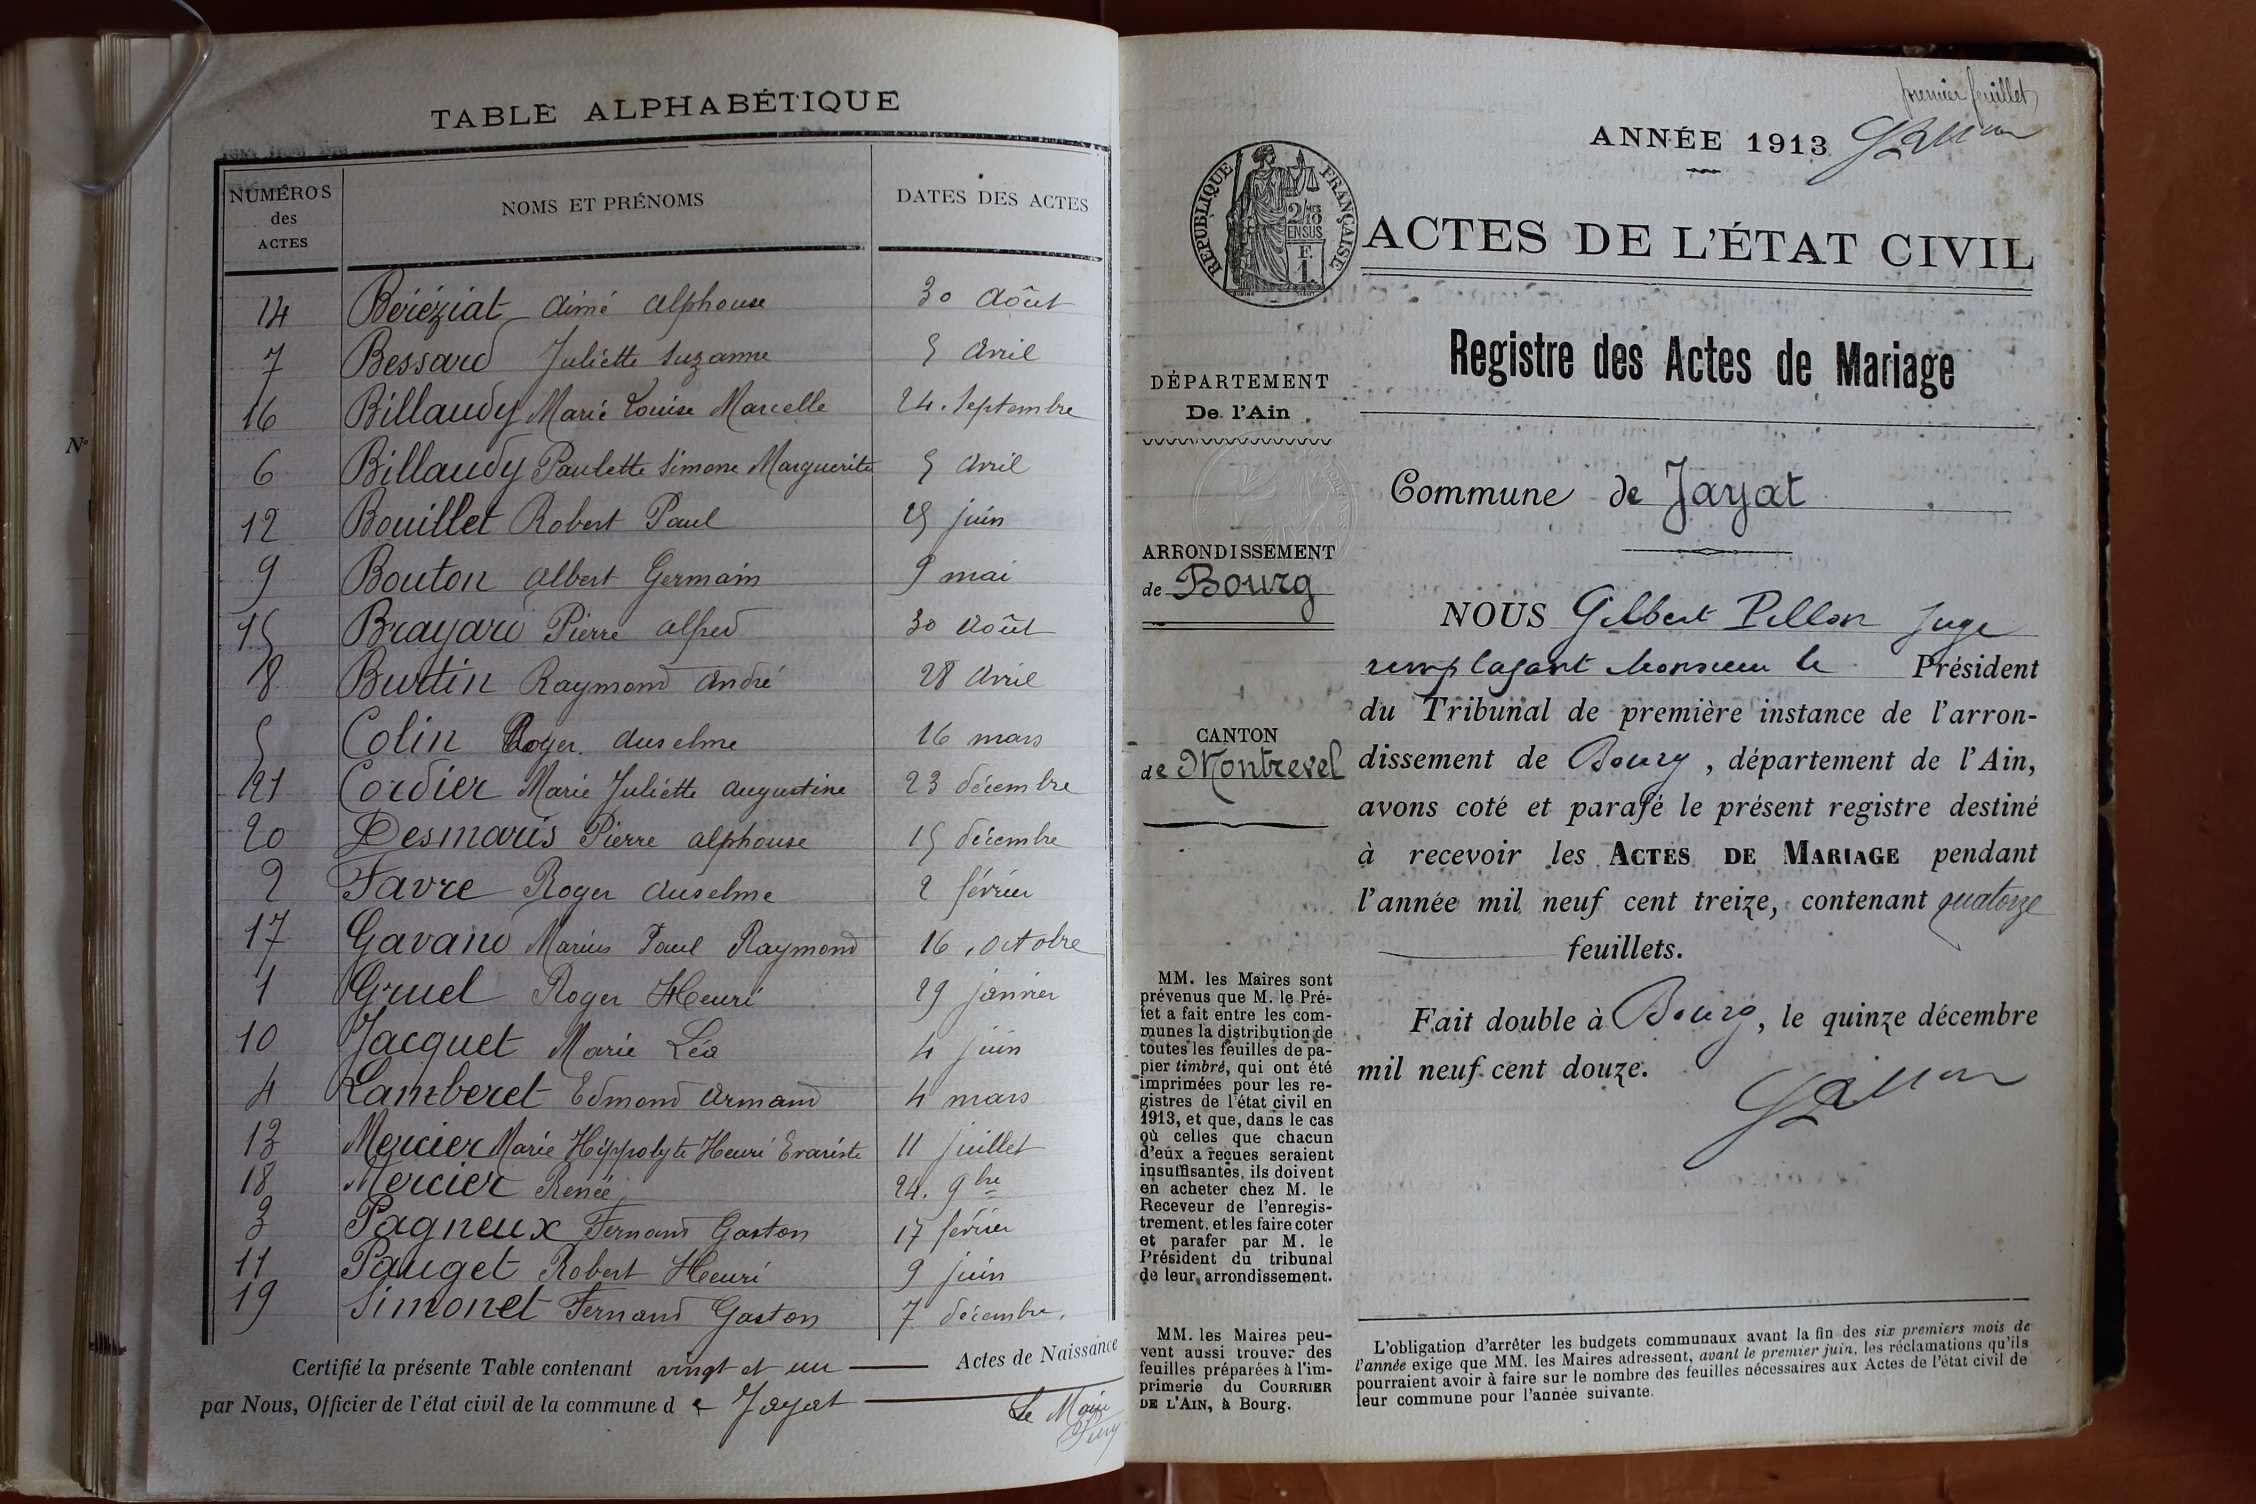 TABLE ALPHABÉTIQUE
NUMÉROS des ACTES NOMS ET PRÉNOMS DATES DES ACTES
14 Béréziat Aimé Alphonse 30 Août
7 Bessard Juliette Suzanne 5 Avril
16 Billaudy Marie Louise Marcelle 24. Septembre
6 Billaudy Paulette Simone Marguerite 5 Avril
12 Bouillet Robert Paul 25 juin
9 Bouton Albert Germain 9 mai
15 Brayard Pierre Alfred 30 Août
8 Burtin Raymond André 28 Avril
5 Colin Roger Anselme 16 mars
21 Cordier Marie Juliette Augustine 23 décembre
20 Desmaris Pierre Alphonse 15 décembre
2 Favre Roger Anselme 2 février
17 Gavand Marius Paul Raymond 16 Octobre
1 Gruel Roger Henri 29 janvier
10 Jacquet Marie Léa 4 juin
4 Lamberet Edmond Armand 4 mars
13 Mercier Marie Hippolyte Henri Evariste 11 juillet
18 Mercier Renée 24. 9bre
3 Pagneux Fernand Gaston 17 février
11 Pauget Robert Henri 9 juin
19 Simonet Fernand Gaston 7 décembre.
Certifié la présente Table contenant vingt et un Actes de Naissance
par Nous, Officier de l'état civil de la commune d e Jayat
Le Maire
premier feuillet
ANNÉE 1913
RÉPUBLIQUE FRANÇAISE
2/10 EN SUS
F. 1.
ACTES DE L'ÉTAT CIVIL
Registre des Actes de Mariage
DÉPARTEMENT
De l'Ain
Commune de Jayat
ARRONDISSEMENT
de Bourg
CANTON
de Montrevel
NOUS Gilbert Pillon Juge
remplaçant Monsieur le Président
du Tribunal de première instance de l'arron-
dissement de Bourg, département de l'Ain,
avons coté et parafé le présent registre destiné
à recevoir les ACTES DE MARIAGE pendant
l'année mil neuf cent treize, contenant quatorze
feuillets.
Fait double à Bourg, le quinze décembre
mil neuf cent douze.
MM. les Maires sont
prévenus que M. le Pré-
fet a fait entre les com-
munes la distribution de
toutes les feuilles de pa-
pier timbré, qui ont été
imprimées pour les re-
gistres de l'état civil en
1913, et que, dans le cas
où celles que chacun
d'eux a reçues seraient
insuffisantes, ils doivent
en acheter chez M. le
Receveur de l'enregis-
trement, et les faire coter
et parafer par M. le
Président du tribunal
de leur arrondissement.
MM. les Maires peu-
vent aussi trouver des
feuilles préparées à l'im-
primerie du COURRIER
DE L'AIN, à Bourg.
L'obligation d'arrêter les budgets communaux avant la fin des six premiers mois de
l'année exige que MM. les Maires adressent, avant le premier juin, les réclamations qu'ils
pourraient avoir à faire sur le nombre des feuilles nécessaires aux Actes de l'état civil de
leur commune pour l'année suivante.